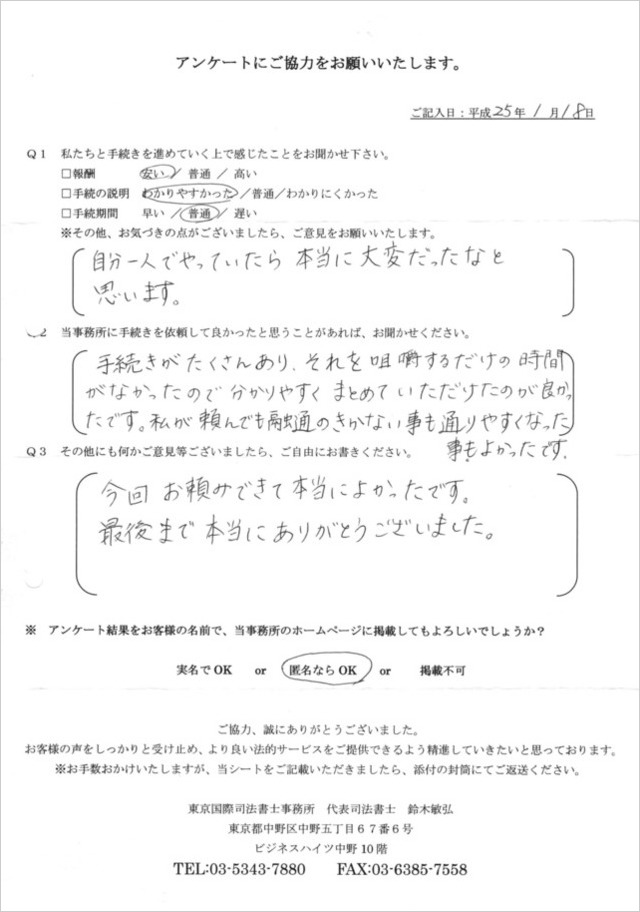 アンケートにご協力をお願いいたします。
ご記入日：平成25年 1月18日
Q1 私たちと手続きを進めていく上で感じたことをお聞かせ下さい。
□報酬 安い／普通／高い
□手続の説明 わかりやすかった／普通／わかりにくかった
□手続期間 早い／普通／遅い
※その他、お気づきの点がございましたら、ご意見をお願いいたします。
自分一人でやっていたら 本当に大変だったなと
思います。
2 当事務所に手続きを依頼して良かったと思うことがあれば、お聞かせください。
手続きがたくさんあり、それを咀嚼するだけの時間
がなかったので分かりやすく まとめていただけたのが良かっ
たです。私が頼んでも融通のきかない事も通りやすくなった
事もよかったです。
Q3 その他にも何かご意見等ございましたら、ご自由にお書きください。
今回 お頼みできて本当によかったです。
最後まで本当にありがとうございました。
※ アンケート結果をお客様の名前で、当事務所のホームページに掲載してもよろしいでしょうか？
実名でOK or 匿名ならOK or 掲載不可
ご協力、誠にありがとうございました。
お客様の声をしっかりと受け止め、より良い法的サービスをご提供できるよう精進していきたいと思っております。
※お手数おかけいたしますが、当シートをご記載いただきましたら、添付の封筒にてご返送ください。
東京国際司法書士事務所 代表司法書士 鈴木敏弘
東京都中野区中野五丁目６７番６号
ビジネスハイツ中野10階
TEL:03-5343-7880 FAX:03-6385-7558